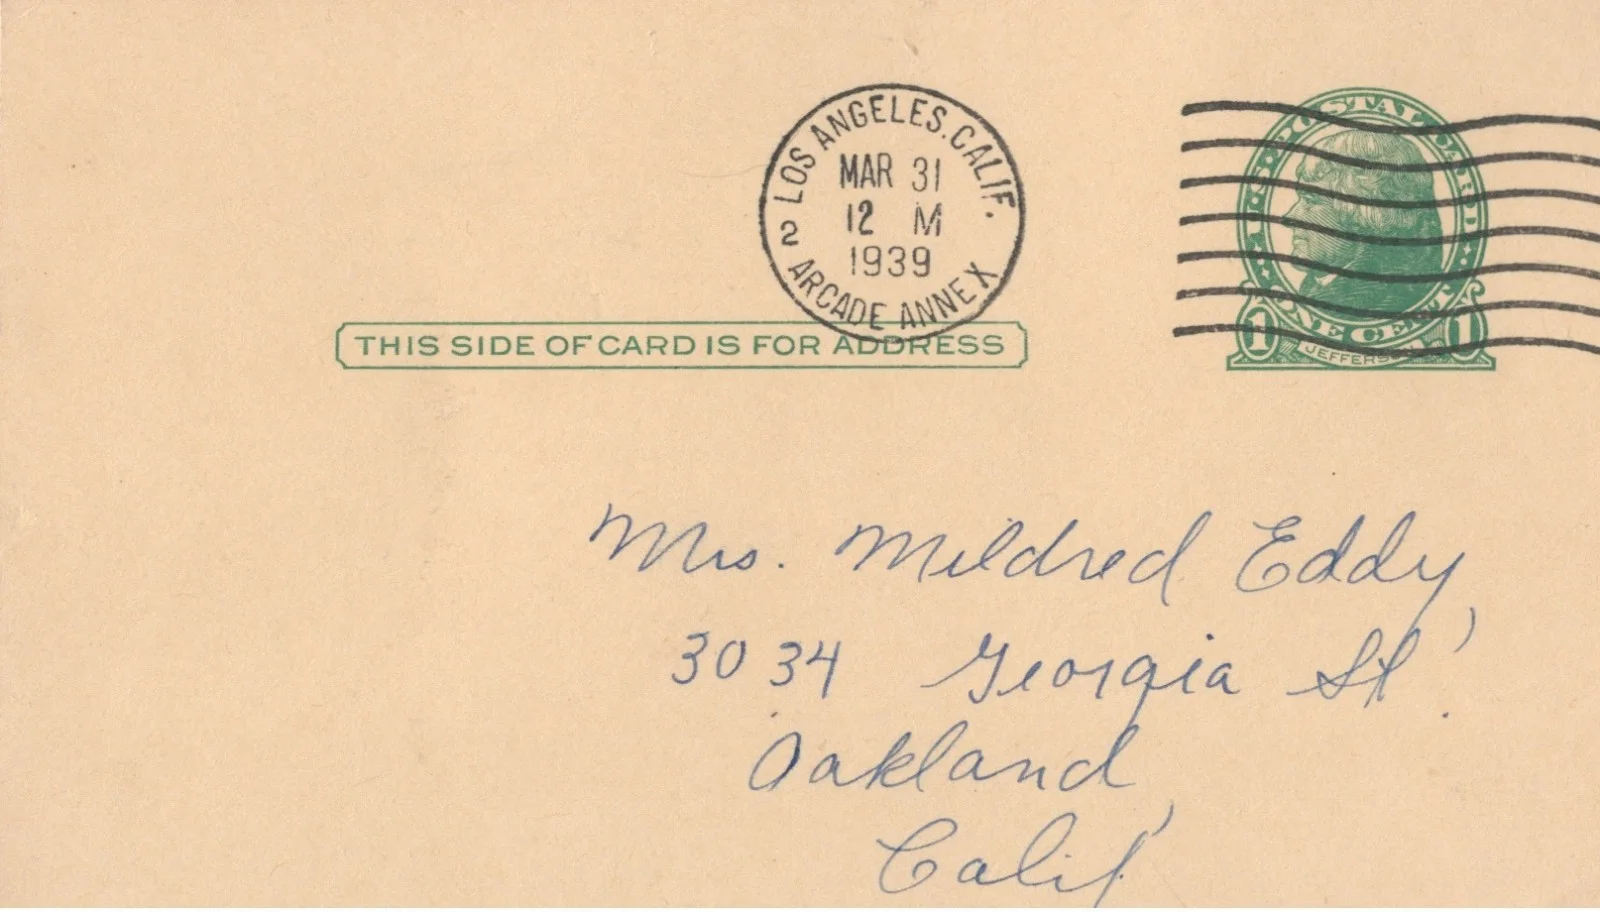 LOS ANGELES, CALIF.
MAR 31
12 M
1939
2
ARCADE ANNEX
U.S. POSTAL CARD
ONE CENT
1 1
JEFFERSON
THIS SIDE OF CARD IS FOR ADDRESS
Mrs. Mildred Eddy,
3034 Georgia St.
Oakland,
Calif.